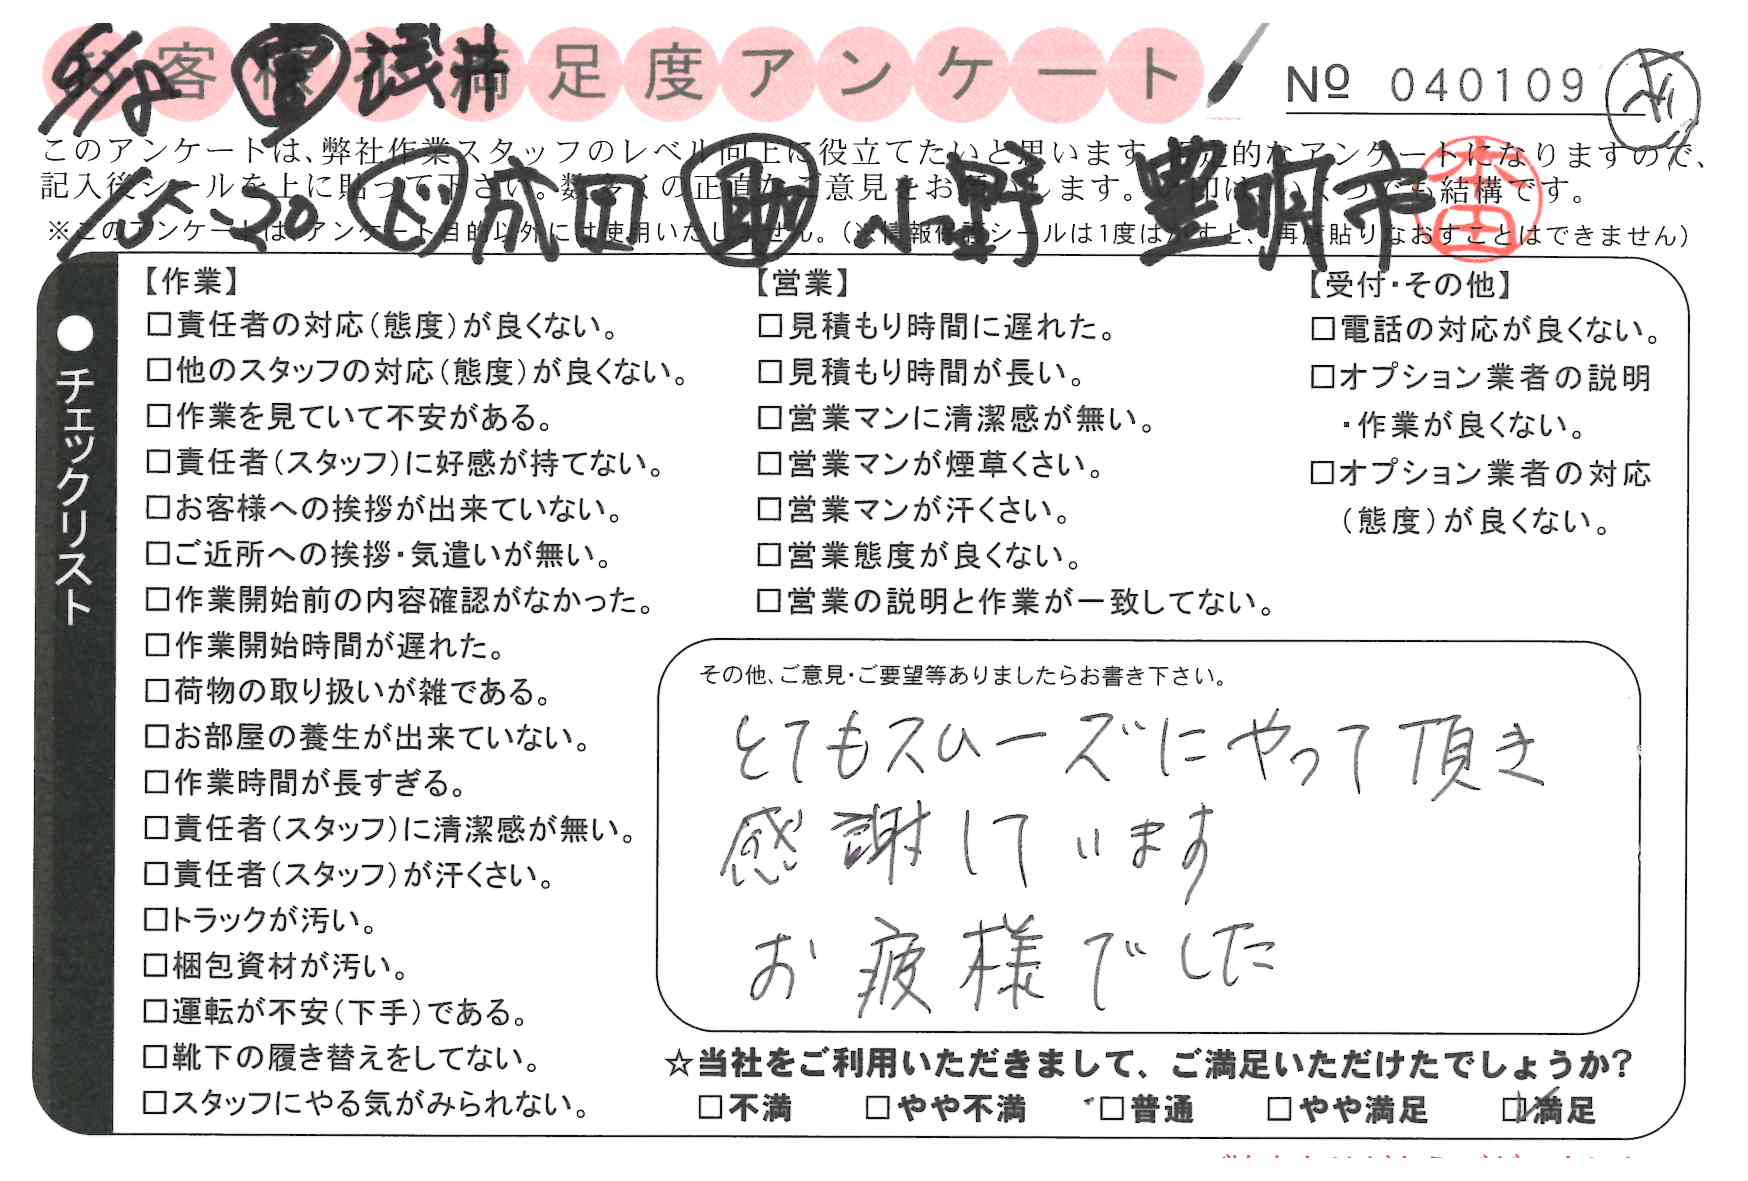 お客様不満足度アンケート
営 浅井
№ 040109
このアンケートは、弊社作業スタッフのレベル向上に役立てたいと思います。否定的なアンケートになりますので、
記入後シールを上に貼って下さい。数多くの正直なご意見をお願いします。
15-20 ド 成田 助 小野 豊明市
※このアンケートは、アンケート目的以外には使用いたしません。(※情報保護シールは1度はがすと、再度貼りなおすことはできません)
●チェックリスト
【作業】
□責任者の対応(態度)が良くない。
□他のスタッフの対応(態度)が良くない。
□作業を見ていて不安がある。
□責任者(スタッフ)に好感が持てない。
□お客様への挨拶が出来ていない。
□ご近所への挨拶・気遣いが無い。
□作業開始前の内容確認がなかった。
□作業開始時間が遅れた。
□荷物の取り扱いが雑である。
□お部屋の養生が出来ていない。
□作業時間が長すぎる。
□責任者(スタッフ)に清潔感が無い。
□責任者(スタッフ)が汗くさい。
□トラックが汚い。
□梱包資材が汚い。
□運転が不安(下手)である。
□靴下の履き替えをしてない。
□スタッフにやる気がみられない。
【営業】
□見積もり時間に遅れた。
□見積もり時間が長い。
□営業マンに清潔感が無い。
□営業マンが煙草くさい。
□営業マンが汗くさい。
□営業態度が良くない。
□営業の説明と作業が一致してない。
【受付・その他】
□電話の対応が良くない。
□オプション業者の説明
・作業が良くない。
□オプション業者の対応
(態度)が良くない。
その他、ご意見・ご要望等ありましたらお書き下さい。
とてもスムーズにやって頂き
感謝しています
お疲様でした
☆当社をご利用いただきまして、ご満足いただけたでしょうか?
□不満 □やや不満 □普通 □やや満足 ☑満足